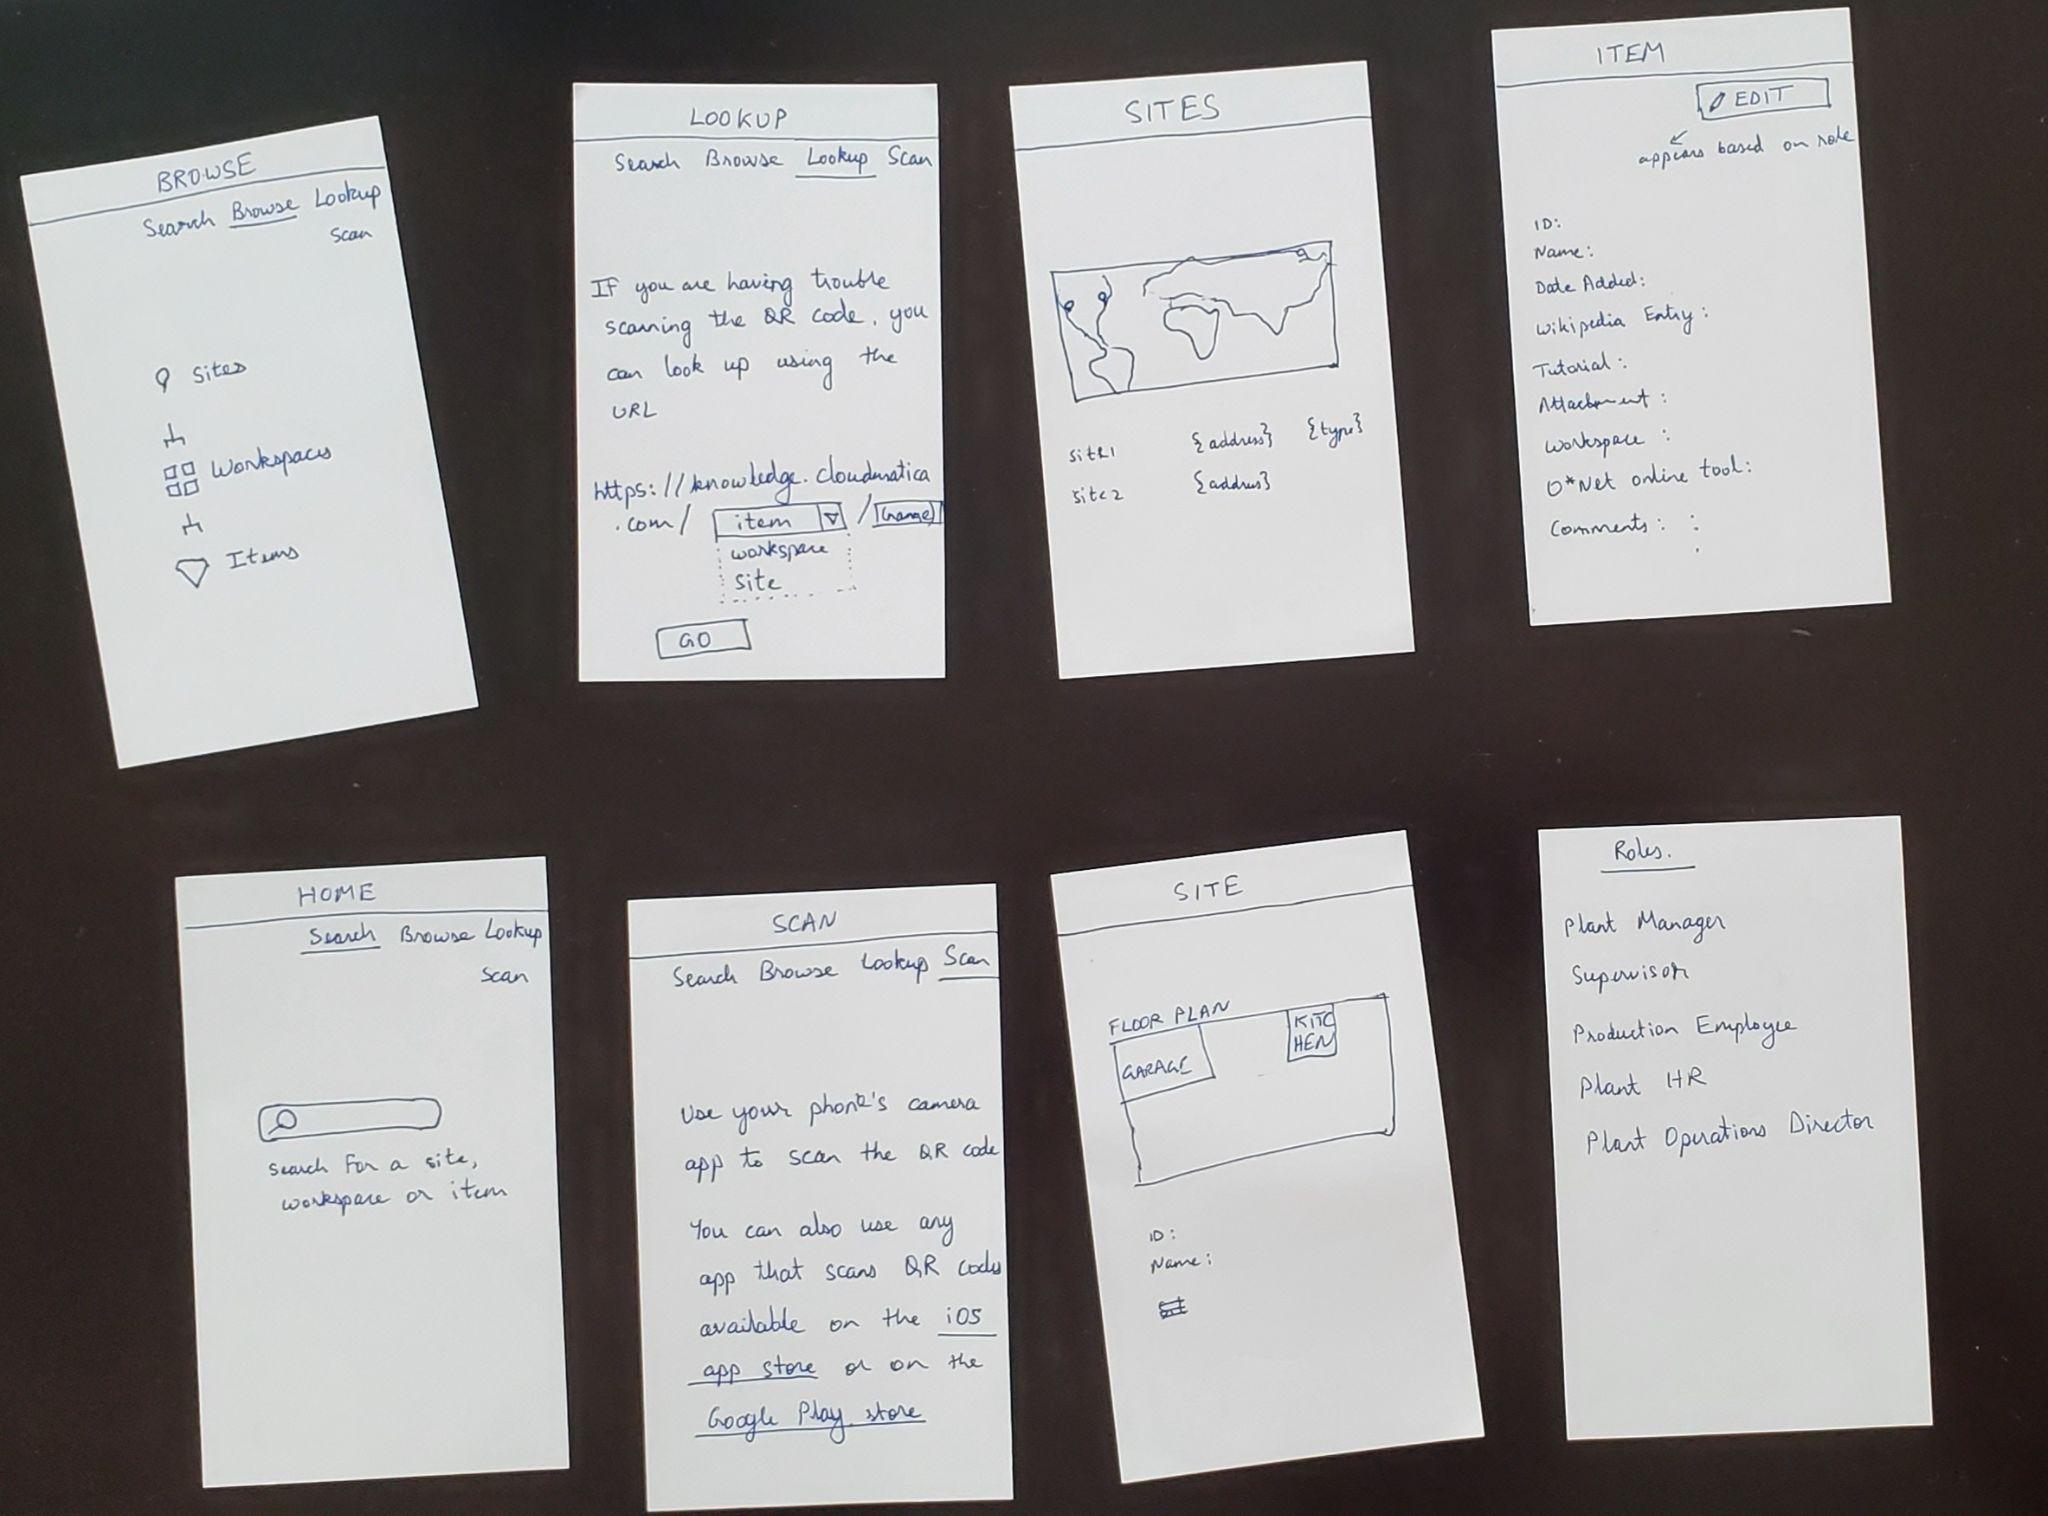 BROWSE
Search Browse Lookup
Scan
Sites
Workspaces
Items
LOOKUP
Search Browse Lookup Scan
If you are having trouble
scanning the QR code, you
can look up using the
URL
https://knowledge.cloudmatica
.com/ item /
workspace
site
GO
SITES
site1 {address} {type}
site2 {address}
ITEM
EDIT
appears based on role
ID:
Name:
Date Added:
Wikipedia Entry:
Tutorial:
Attachment:
Workspace :
O*Net online tool:
Comments: :
HOME
Search Browse Lookup
Scan
Search for a site,
workspace or item
SCAN
Search Browse Lookup Scan
Use your phone's camera
app to scan the QR code
You can also use any
app that scans QR codes
available on the iOS
app store or on the
Google Play store
SITE
FLOOR PLAN
GARAGE
KITC
HEN
ID:
Name:
Roles.
Plant Manager
Supervisor
Production Employee
Plant HR
Plant Operations Director